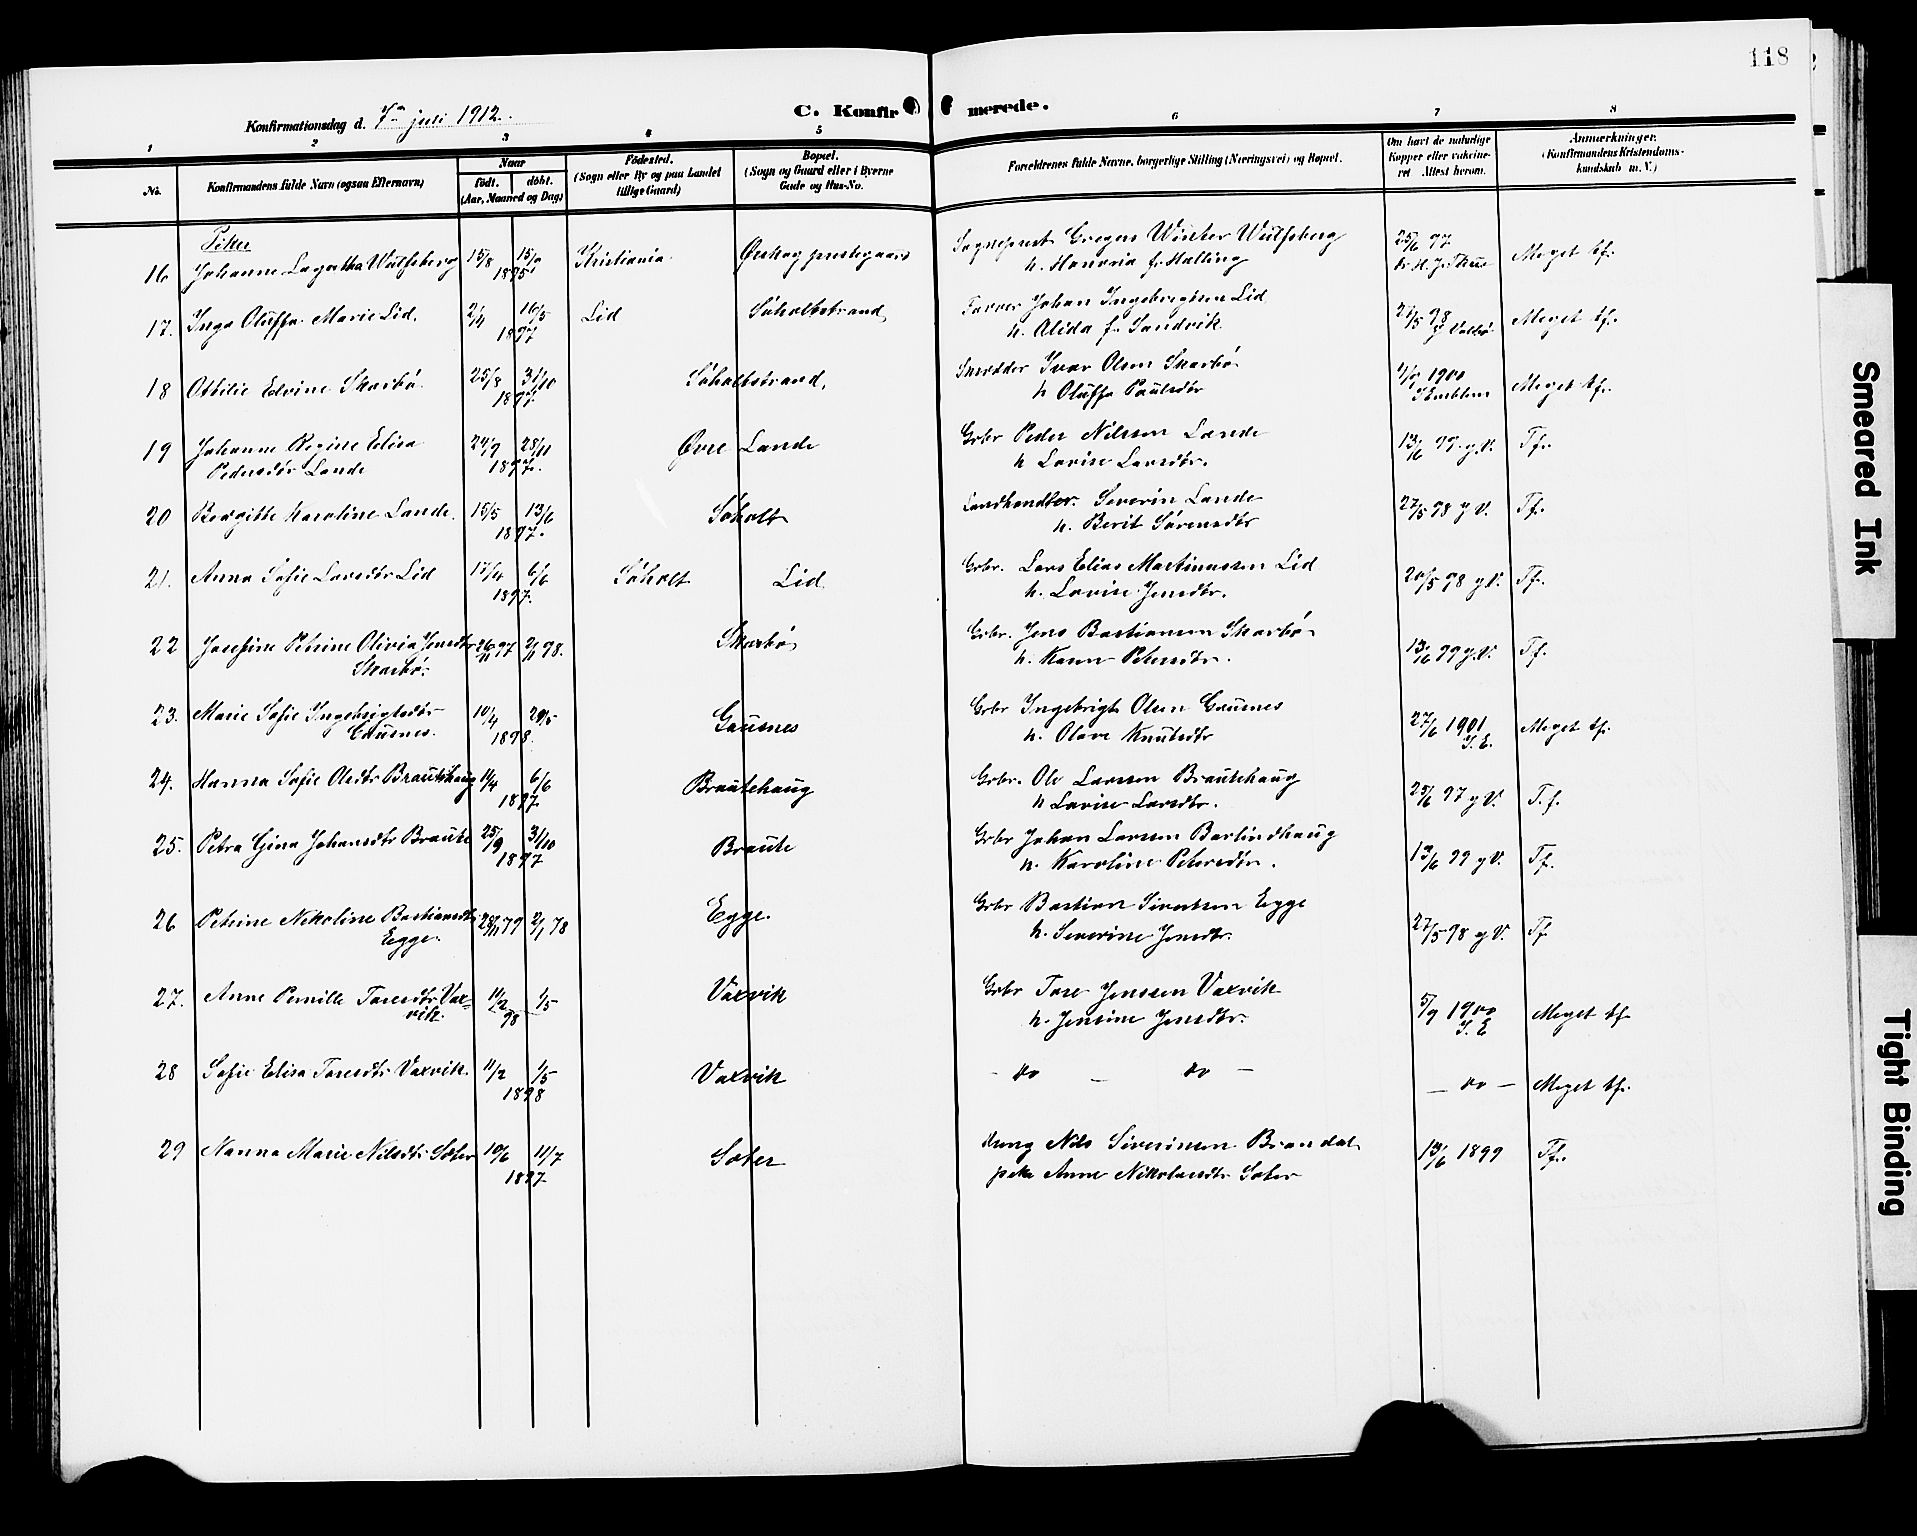 118
Konfirmationsdag d. 7de juli 1912.
C. Konfir merede.
1 2 3 4 5 6 7 8
No.
Konfirmandens fulde Navn (ogsaa Efternavn)
Naar
født. døbt.
(Aar, Maaned og Dag)
Fødested.
(Sogn eller By og paa Landet
tillige Gaard)
Bopæl.
(Sogn og Gaard eller i Byerne
Gade og Hus-No.
Forældrenes fulde Navne, borgerlige Stilling (Næringsvei) og Bopæl.
Om havt de naturlige
Kopper eller vakcine-
ret Attest herom.
Anmærkninger.
(Konfirmandens Kristendoms-
kundskab m. V.)
Piker
16 Johanne Lagertha Wulfsberg 15/8 1895 Kristiania Ørskog prestegaard Sogneprest Gregers Winter Wulfsberg 25/6 97 Meget tf.
h. Hanna f. Halling
17. Inga Oluffa Marie Lid. 2/4 16/5 Lid Søholtstrand Farver Johan Ingebrigtsen Lid 98 Meget tf.
1897 h. Alida f. Sandvik
18 Othilie Edvine Skarbø 25/8 31/10 Søholtstrand, Skrædder Ivar Olsen Skarbø 1900 Meget tf.
1897 h Oluffa Paulsdtr
19 Johanne Regine Elisa 24/9 28/11 Øvre Lande Grbr Peder Nilssen Lande 13/6 99 g.V. Tf.
Pedersdtr Lande 1897. h Lovise Larsdtr.
20 Bergitte Karoline Lande. 15/5 13/6 Søholt Landhandler. Severin Lande 27/5 98 g V. Tf.
1897. h. Berit Sørensdtr
21. Anna Sofie Larsdtr Lid 17/4 6/6 Søholt Lid Grbr. Lars Elias Martinussen Lid 20/5 98 g.V. Tf.
1897. h. Lovise Jensdtr.
22 Josefine Petrine Olivia Jensdtr 26/11 97 2/1 98. Skarbø Grbr. Jens Bastiansen Skarbø 13/6 99 g.V. Tf.
Skarbø. h. Karen Petersdtr.
23. Marie Sofie Ingebrigtsdtr 10/4 29/5 Gausnes Grbr Ingebrigt Olsen Gausnes 27/6 1901 Meget tf.
Gausnes. 1898. h. Olave Knutsdtr I.E.
24. Hanna Sofie Olsdtr Brautehaug 1/4 6/6 Brautehaug Grbr. Ole Larssen Brautehaug 25/6 97 g V. T.f.
1897 h Lovise Larsdtr.
25. Petra Gina Johansdtr Braute 25/9 31/10 Braute Grbr Johan Larssen Barlindhaug 13/6 99 g V. Tf.
1897 h. Karoline Petersdtr.
26 Petrine Nikoline Bastiansdtr 28/11 79 2/1 78 Egge. Grbr Bastian Sivertsen Egge 27/5 98 g V. Tf
Egge. h. Severine Jensdtr.
27. Anne Pernille Toresdtr Vax- 11/2 1/5 Vaxvik Grbr Tore Jenssen Vaxvik 5/9 1900 Meget tf.
vik. 98 h. Jensine Jensdtr. I. E
28 Sofie Elisa Toresdtr Vaxvik. 11/2 1/5 Vaxvik - do - do - - do - Meget tf.
1898
29 Nanna Marie Nilsdtr Sæter 10/6 11/7 Sæter Ung Nils Sivertsen Brandal 13/6 1899 Tf.
1897 pike Anne Nikolaisdtr Sæter
Smeared Ink
Tight Binding